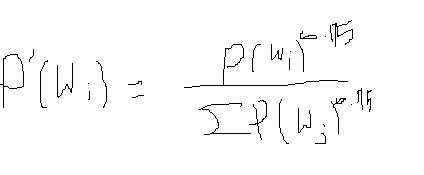 P'(Wi) = P(Wi)^-.75 / ΣP(Wj)^-.75